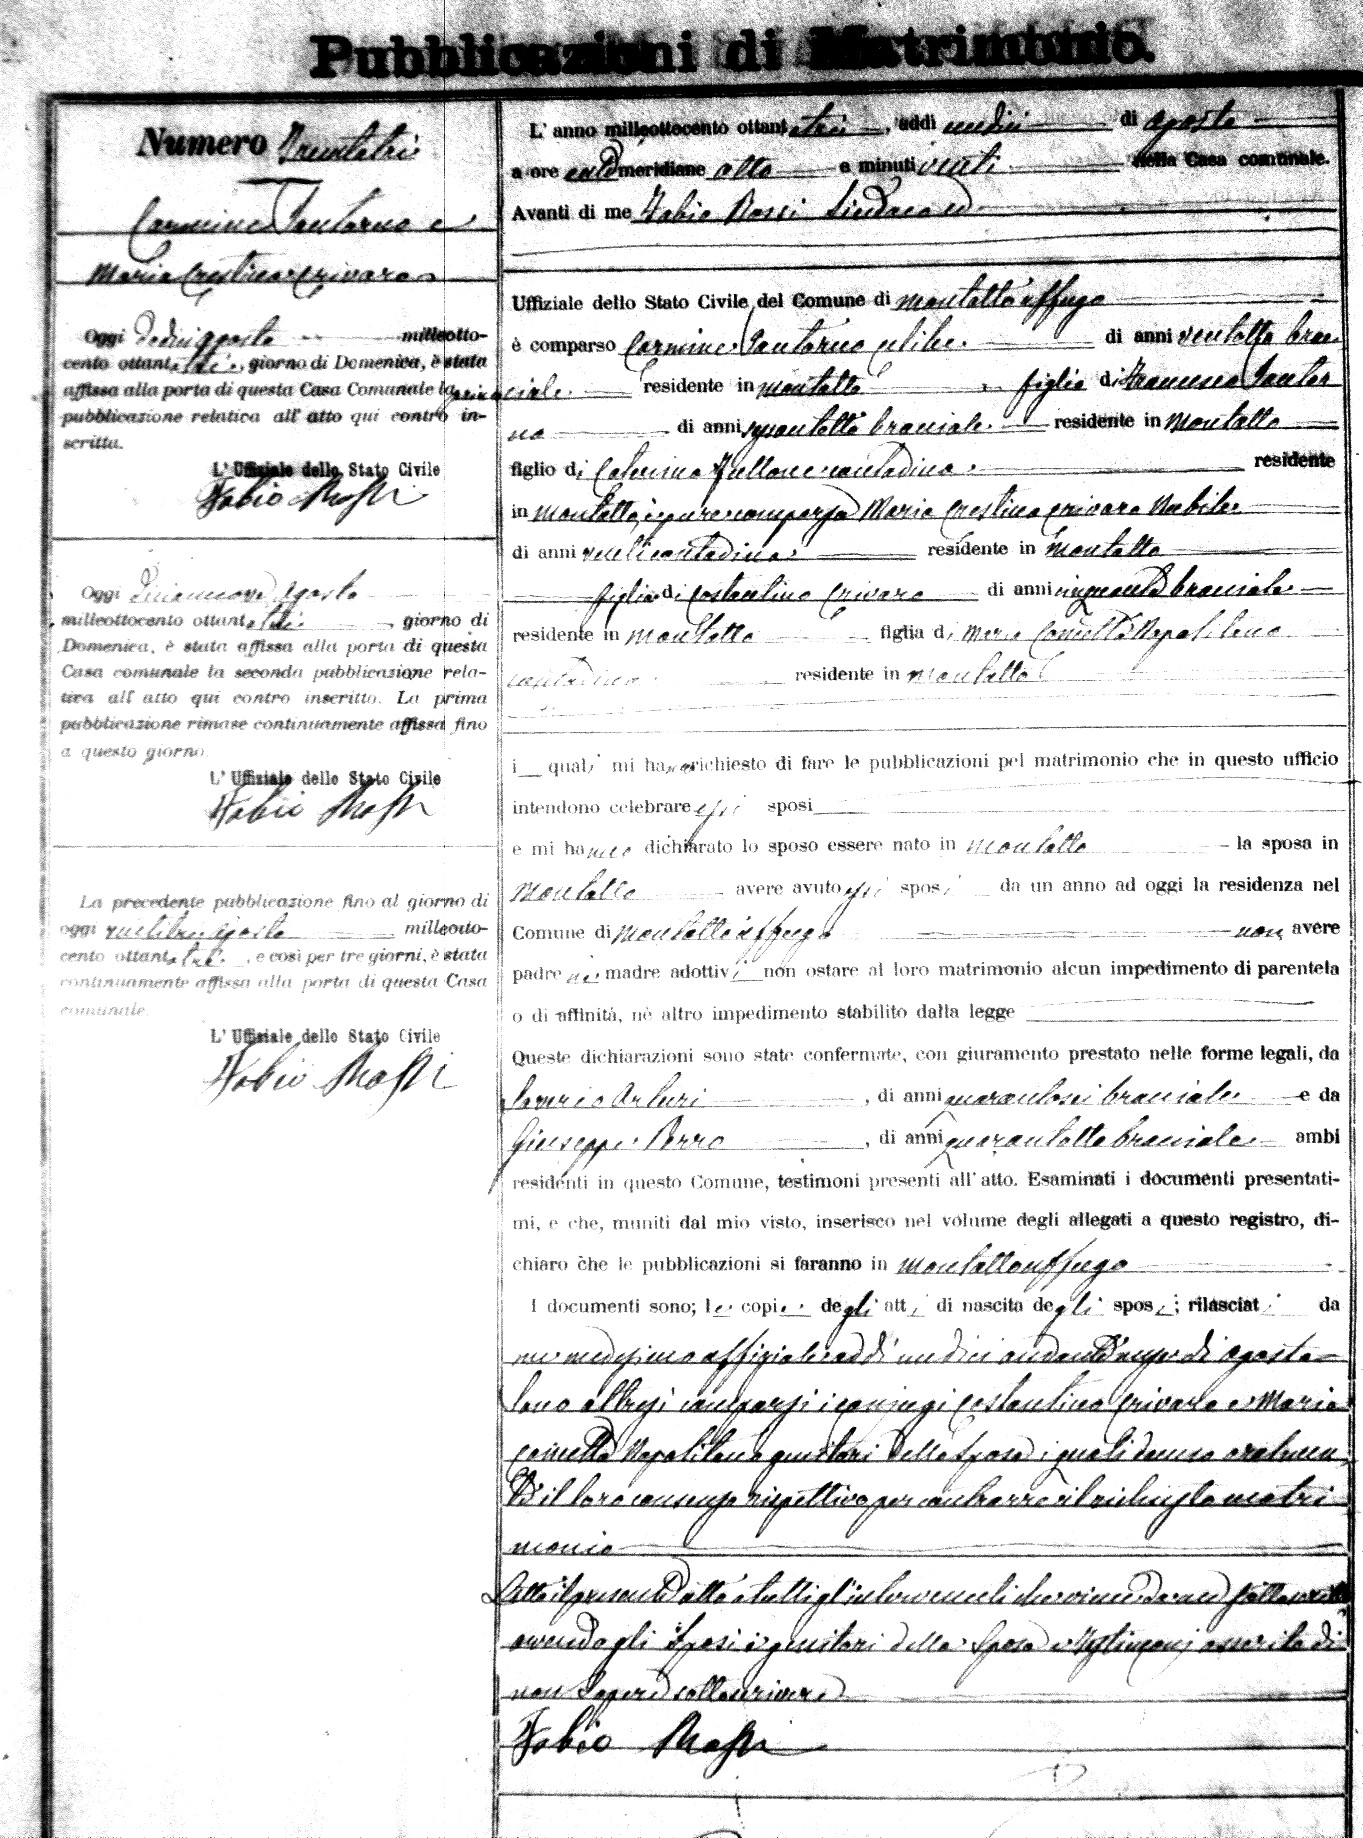 Pubblicazioni di Matrimonio.
Numero Trentatrè
Carmine Santorno e
Maria Crestina Crivaro
Oggi dodici agosto milleotto-
cento ottantatrè, giorno di Domenica, è stata
affissa alla porta di questa Casa Comunale la prima
pubblicazione relativa all' atto qui contro in-
scritto.
L' Uffiziale dello Stato Civile
Fabio Rossi
Oggi diciannove agosto
milleottocento ottantatrè, giorno di
Domenica, è stata affissa alla porta di questa
Casa comunale la seconda pubblicazione rela-
tiva all' atto qui contro inscritto. La prima
pubblicazione rimase continuamente affissa fino
a questo giorno.
L' Uffiziale dello Stato Civile
Fabio Rossi
La precedente pubblicazione fino al giorno di
oggi ventitre agosto milleotto-
cento ottantatrè, e così per tre giorni, è stata
continuamente affissa alla porta di questa Casa
comunale.
L' Uffiziale dello Stato Civile
Fabio Rossi
L' anno milleottocento ottantatrè, addì undici di agosto
a ore antimeridiane otto e minuti venti nella Casa comunale.
Avanti di me Fabio Rossi Sindaco ed
Uffiziale dello Stato Civile del Comune di Montalto Uffugo
è comparso Carmine Santorno celibe di anni ventotto brac
ciale residente in Montalto figlio di Francesco Santor
no di anni sessantotto bracciale residente in Montalto
figlio di Caterina Fullone contadina residente
in Montalto; è pure comparsa Maria Crestina Crivaro Nubile
di anni venti contadina residente in Montalto
figlia di Costantino Crivaro di anni cinquanta bracciale
residente in Montalto figlia di Maria Concetta Napolitano
contadina residente in Montalto
i quali mi hanno richiesto di fare le pubblicazioni pel matrimonio che in questo ufficio
intendono celebrare essi sposi
e mi hanno dichiarato lo sposo essere nato in Montalto la sposa in
Montalto avere avuto essi sposi da un anno ad oggi la residenza nel
Comune di Montalto Uffugo non avere
padre nè madre adottivi non ostare al loro matrimonio alcun impedimento di parentela
o di affinità, nè altro impedimento stabilito dalla legge
Queste dichiarazioni sono state confermate, con giuramento prestato nelle forme legali, da
Saverio Arturi, di anni quarantasei bracciale e da
Giuseppe Perro, di anni quarantotto bracciale ambi
residenti in questo Comune, testimoni presenti all' atto. Esaminati i documenti presentati-
mi, e che, muniti dal mio visto, inserisco nel volume degli allegati a questo registro, di-
chiaro che le pubblicazioni si faranno in Montalto Uffugo
I documenti sono; le copie degli atti di nascita degli sposi; rilasciati da
me medesimo uffiziale addì undici andante mese di agosto
Sono altresì comparsi i conjugi Costantino Crivaro e Maria
Concetta Napolitano genitori della Sposa i quali danno oralmen
te il loro consenso rispettivo per contrarre il richiesto matri
monio
Letto il presente atto a tutti gl'intervenuti
avendo gli Sposi i genitori della Sposa e testimonj asserito di
non sapere sottoscrivere
Fabio Rossi